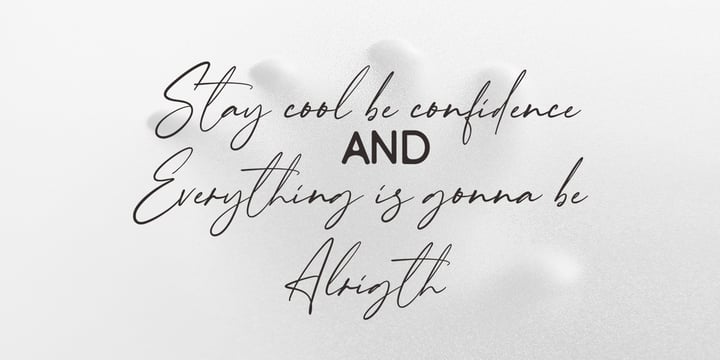 Stay cool be confidence
AND
Everything is gonna be
Alrigth